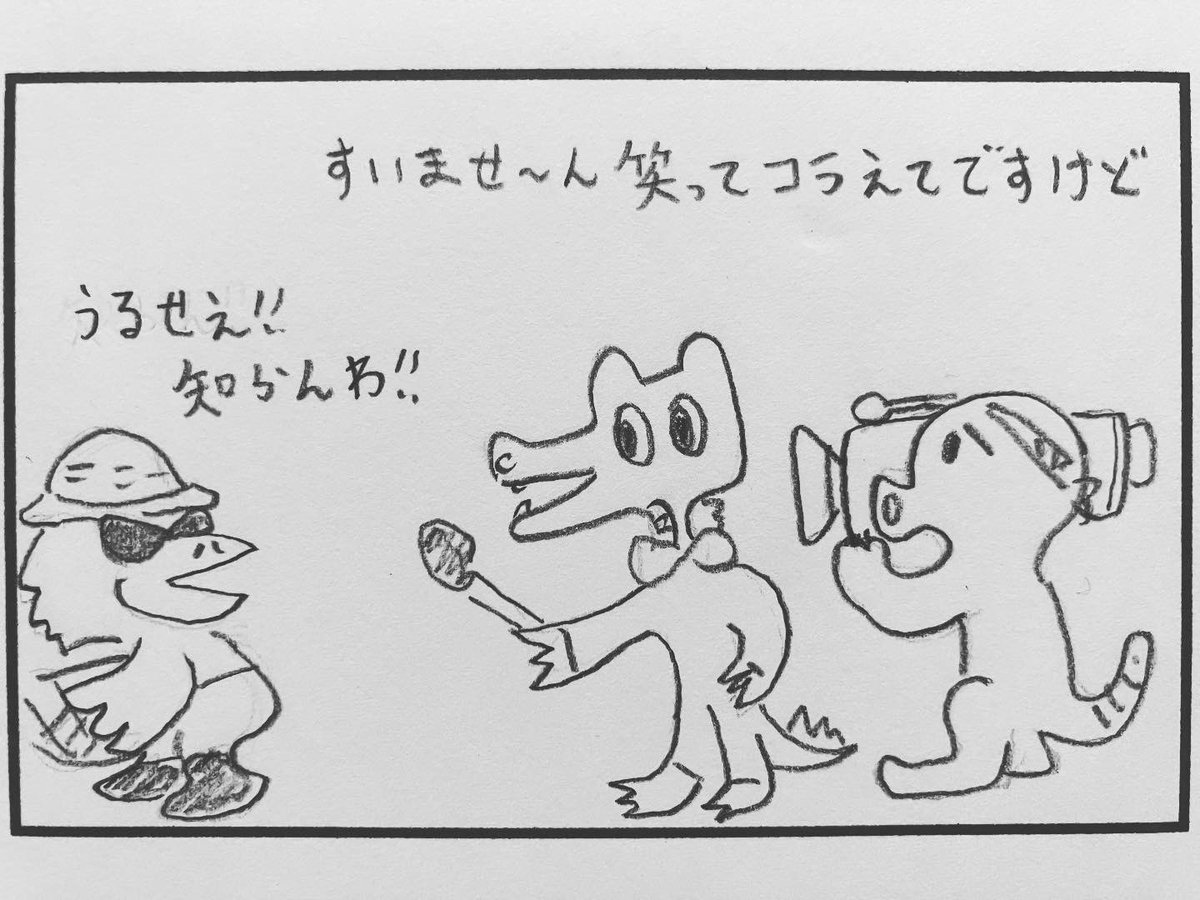 すいませ〜ん笑ってコラえてですけど
うるせえ!!
知らんわ!!